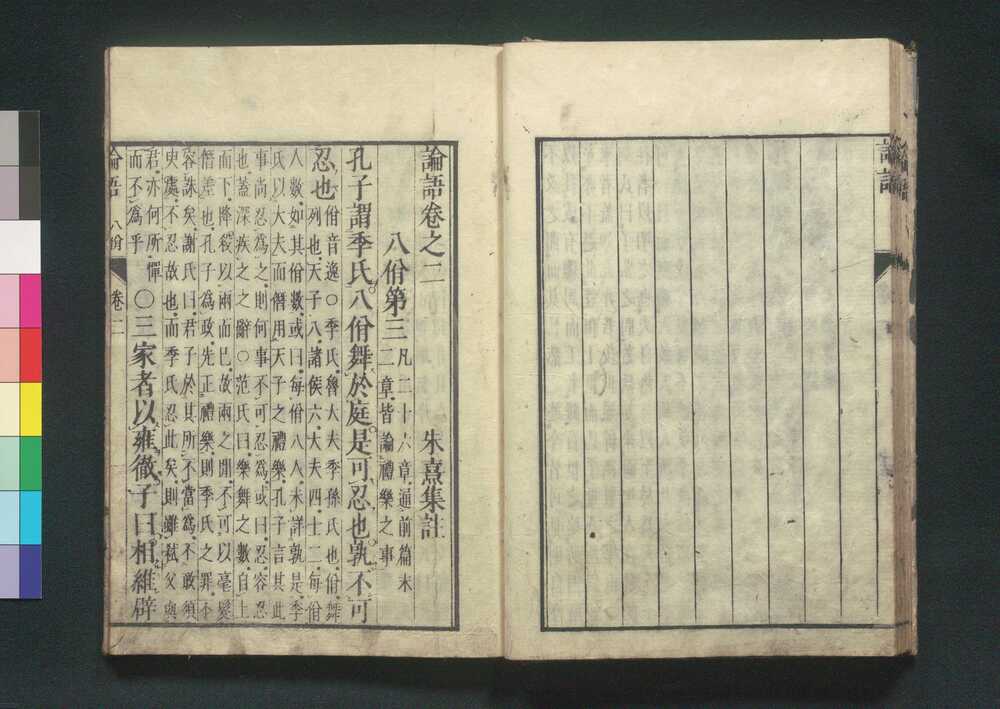 論語
論語卷之二　朱熹集註
八佾第三
凡二十六章通前篇末
二章皆論禮樂之事
孔子謂季氏八佾舞於庭是可忍也孰不可
忍也
佾音逸○季氏魯大夫季孫氏也佾舞
列也天子八諸侯六大夫四士二每佾
人數如其佾數或曰每佾八人未詳孰是季
氏以大夫而僭用天子之禮樂孔子言其此
事尚忍爲之則何事不可忍爲或曰忍容忍
也蓋深疾之之辭○范氏曰樂舞之數自上
而下降殺以兩而已故兩之閒不可以毫髮
僭差也孔子爲政先正禮樂則季氏之罪不
容誅矣謝氏曰君子於其所不當爲不敢須
臾處不忍故也而季氏忍此矣則雖弑父與
君亦何所憚
而不爲乎
○三家者以雍徹子曰相維辟
論語　八佾　卷二